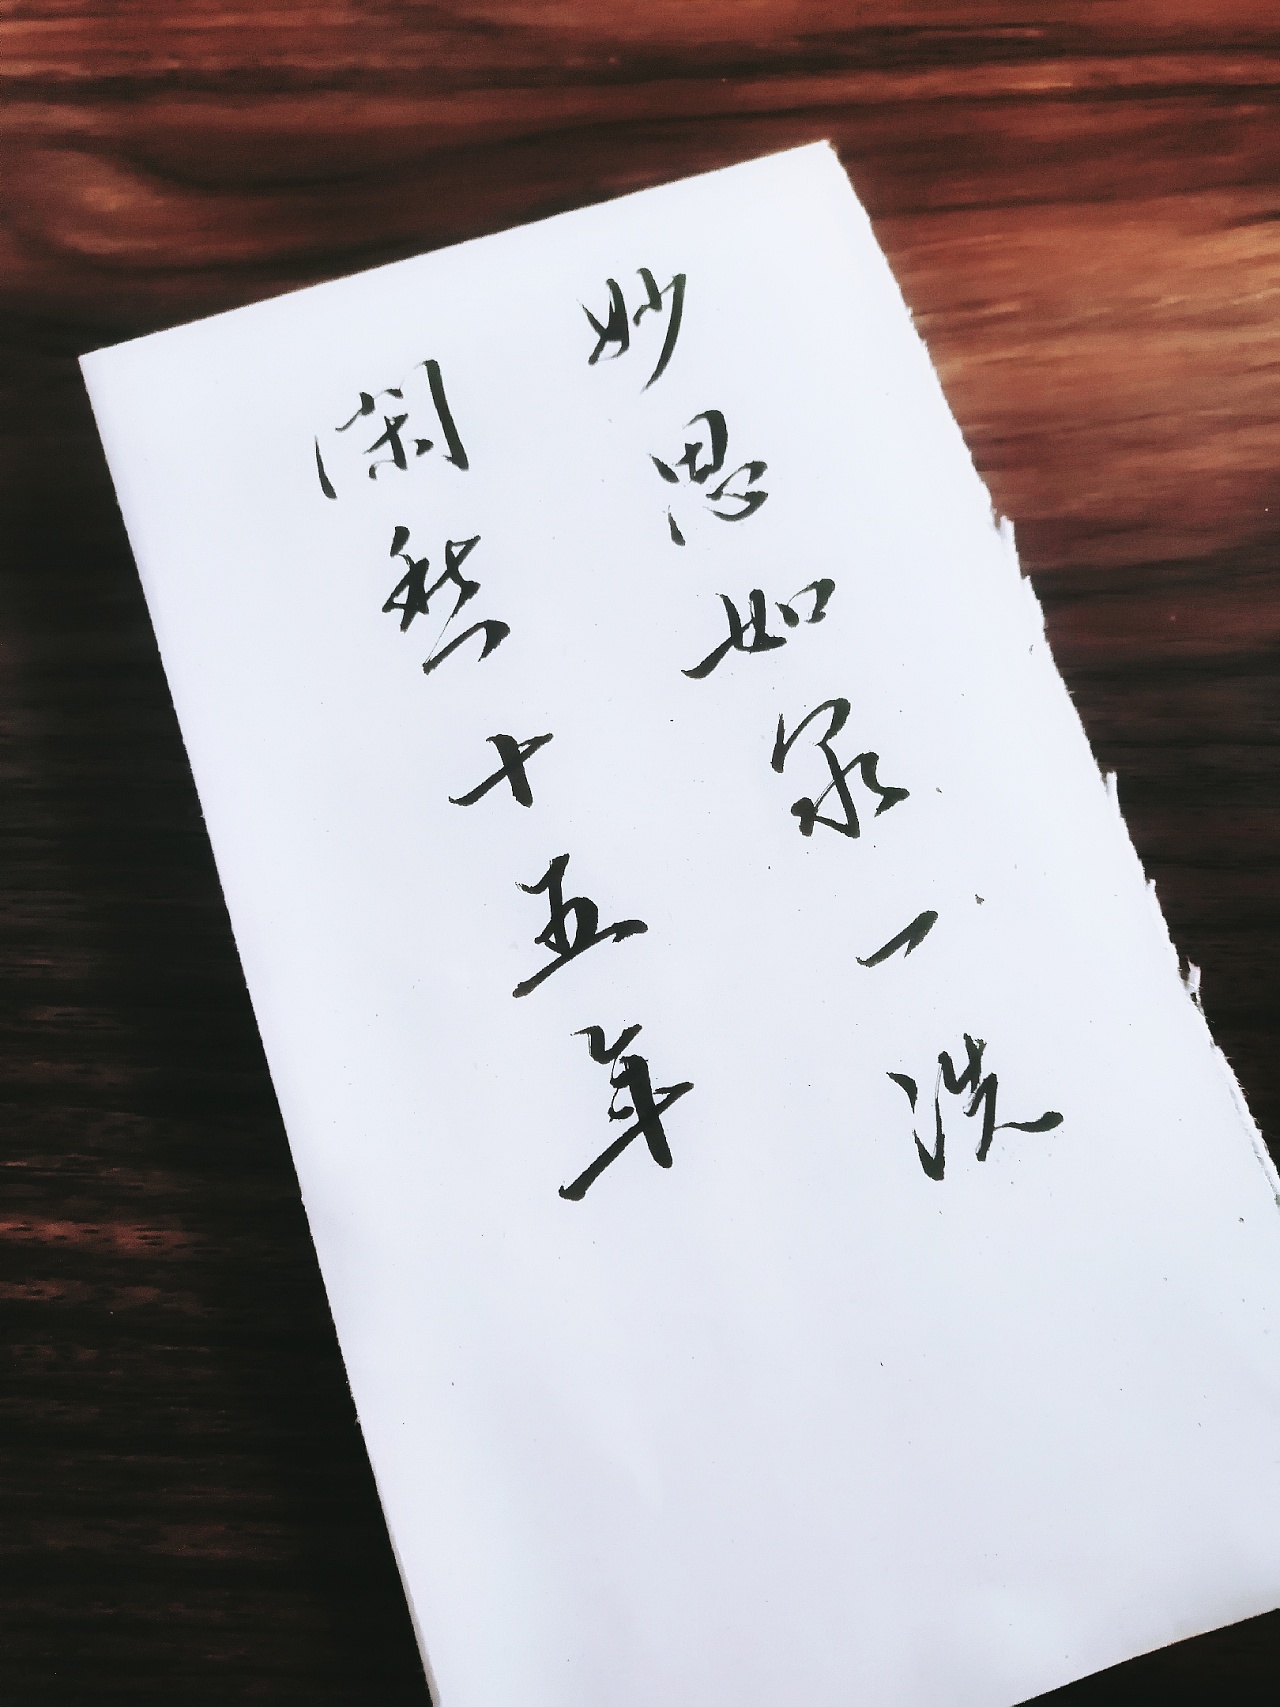 妙思如泉一洗
闲愁十五年